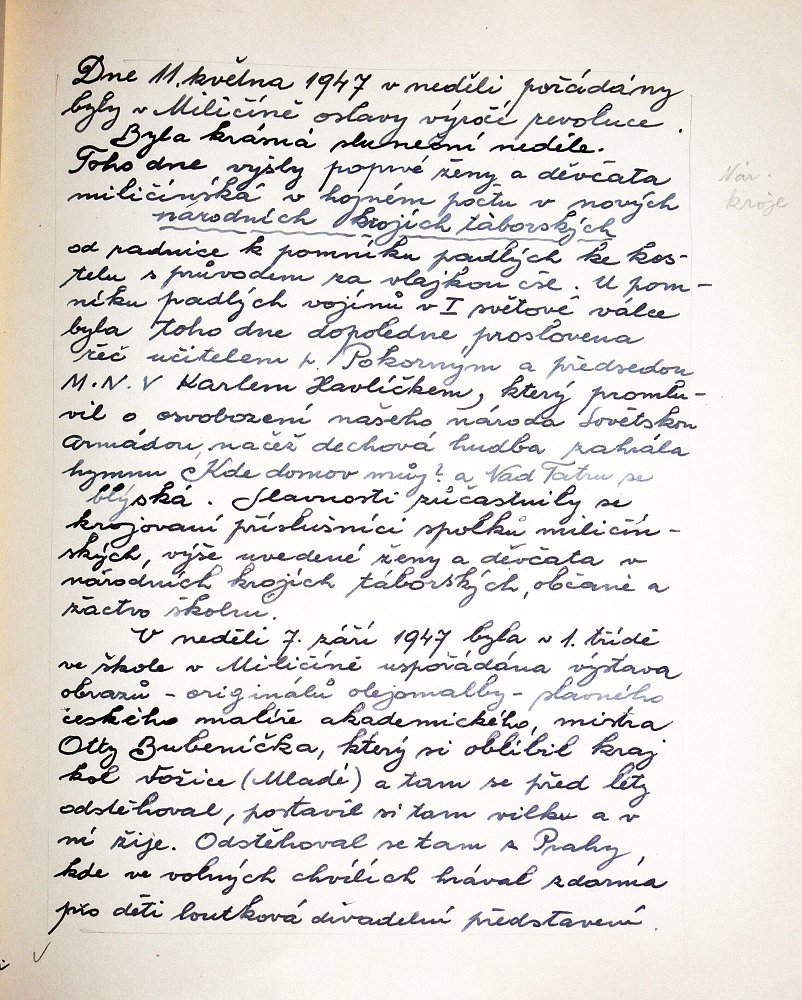 Dne 11. května 1947 v neděli pořádány
byly v Miličíně oslavy výročí revoluce.
Byla krásná sluneční neděle.
Toho dne vyšly poprvé ženy a děvčata
miličínská v hojném počtu v nových
národních krojích táborských
Nár.
kroje
od radnice k pomníku padlých ke kos-
telu s průvodem za vlajkou čse. U pom-
níku padlých vojínů v I světové válce
byla toho dne dopoledne proslovena
řeč učitelem p. Pokorným a předsedou
M.N.V Karlem Havlíčkem, který promlu-
vil o osvobození našeho národa Sovětskou
Armádou, načež dechová hudba zahrála
hymnu Kde domov můj? a Nad Tatru se
blýská. Slavnosti zúčastnily se
krojovaní příslušníci spolků miličín-
ských, výše uvedené ženy a děvčata v
národních krojích táborských, občané a
žactvo školní.
V neděli 7. září 1947 byla v 1. třídě
ve škole v Miličíně uspořádána výstava
obrazů - originálů olejomalby - slavného
českého malíře akademického, mistra
Otty Bubeníčka, který si oblíbil kraj
kol Vožice (Mladé) a tam se před léty
odstěhoval, postavil si tam vilku a v
ní žije. Odstěhoval se tam z Prahy,
kde ve volných chvílích hrával zdarma
pro děti loutková divadelní představení.